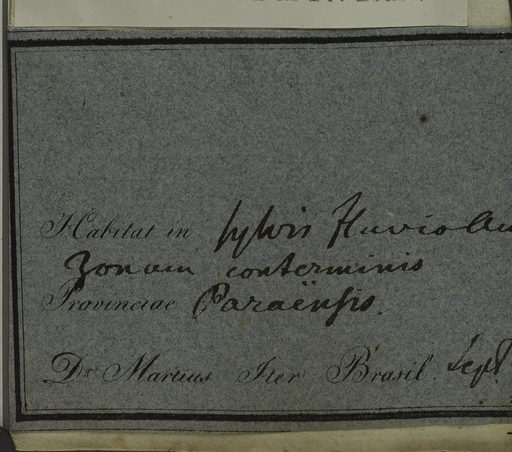 Habitat in sylvis fluvio Am
zonum conterminis
Provinciae Paraënsis.
Dr. Martius Iter Brasil. Sept